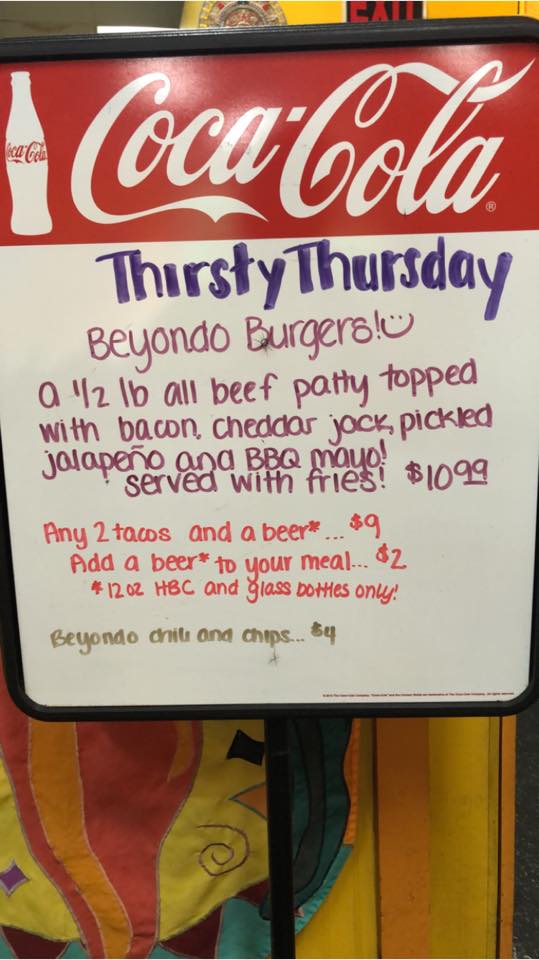 EXIT
Coca-Cola
Coca-Cola®
Thirsty Thursday
Beyondo Burgers!
a 1/2 lb all beef patty topped
with bacon, cheddar jack, pickled
jalapeño and BBQ mayo!
served with fries! $10.99
Any 2 tacos and a beer* ... $9
Add a beer* to your meal... $2
*12oz HBC and glass bottles only!
Beyondo chili and chips... $4